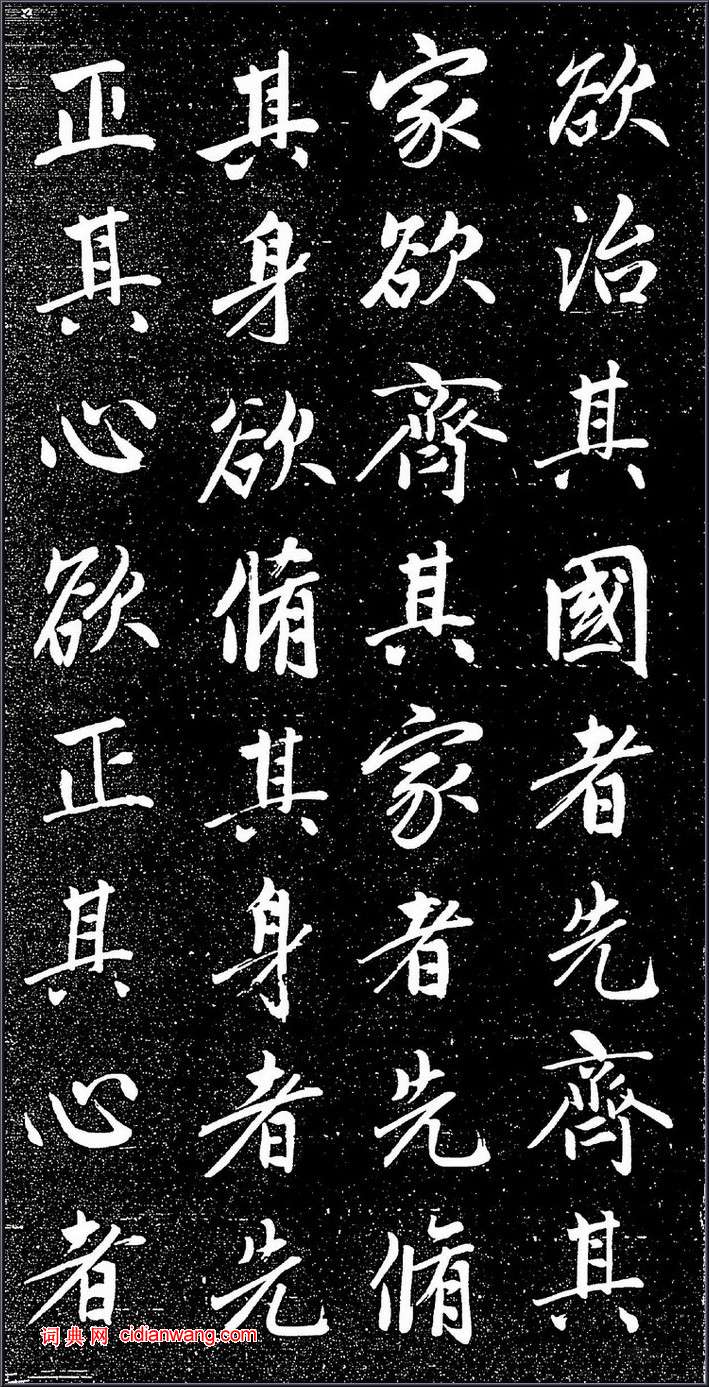 欲治其國者先齊其
家欲齊其家者先脩
其身欲脩其身者先
正其心欲正其心者
词典网 cidianwang.com